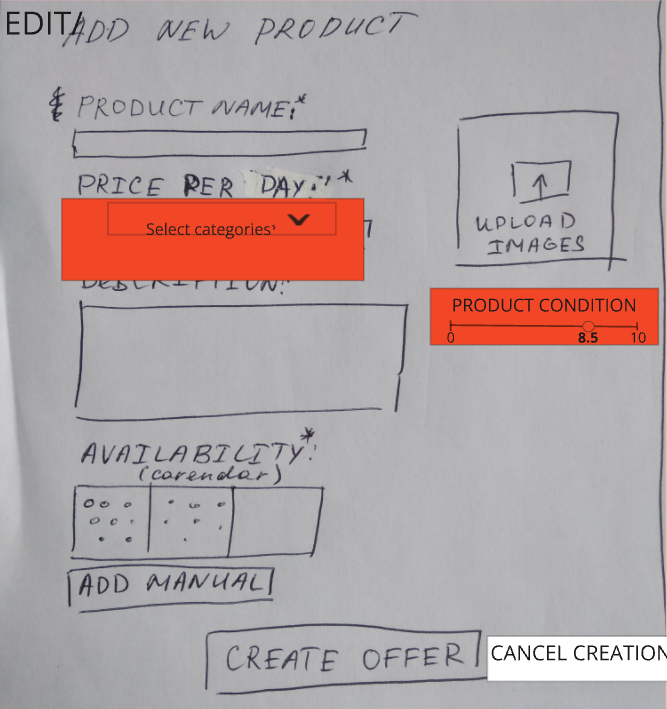 EDIT/ADD NEW PRODUCT
PRODUCT NAME:*
PRICE PER DAY:*
Select categories*
DESCRIPTION:
UPLOAD
IMAGES
PRODUCT CONDITION
0 8.5 10
AVAILABILITY*:
(carendar)
ADD MANUAL
CREATE OFFER
CANCEL CREATION